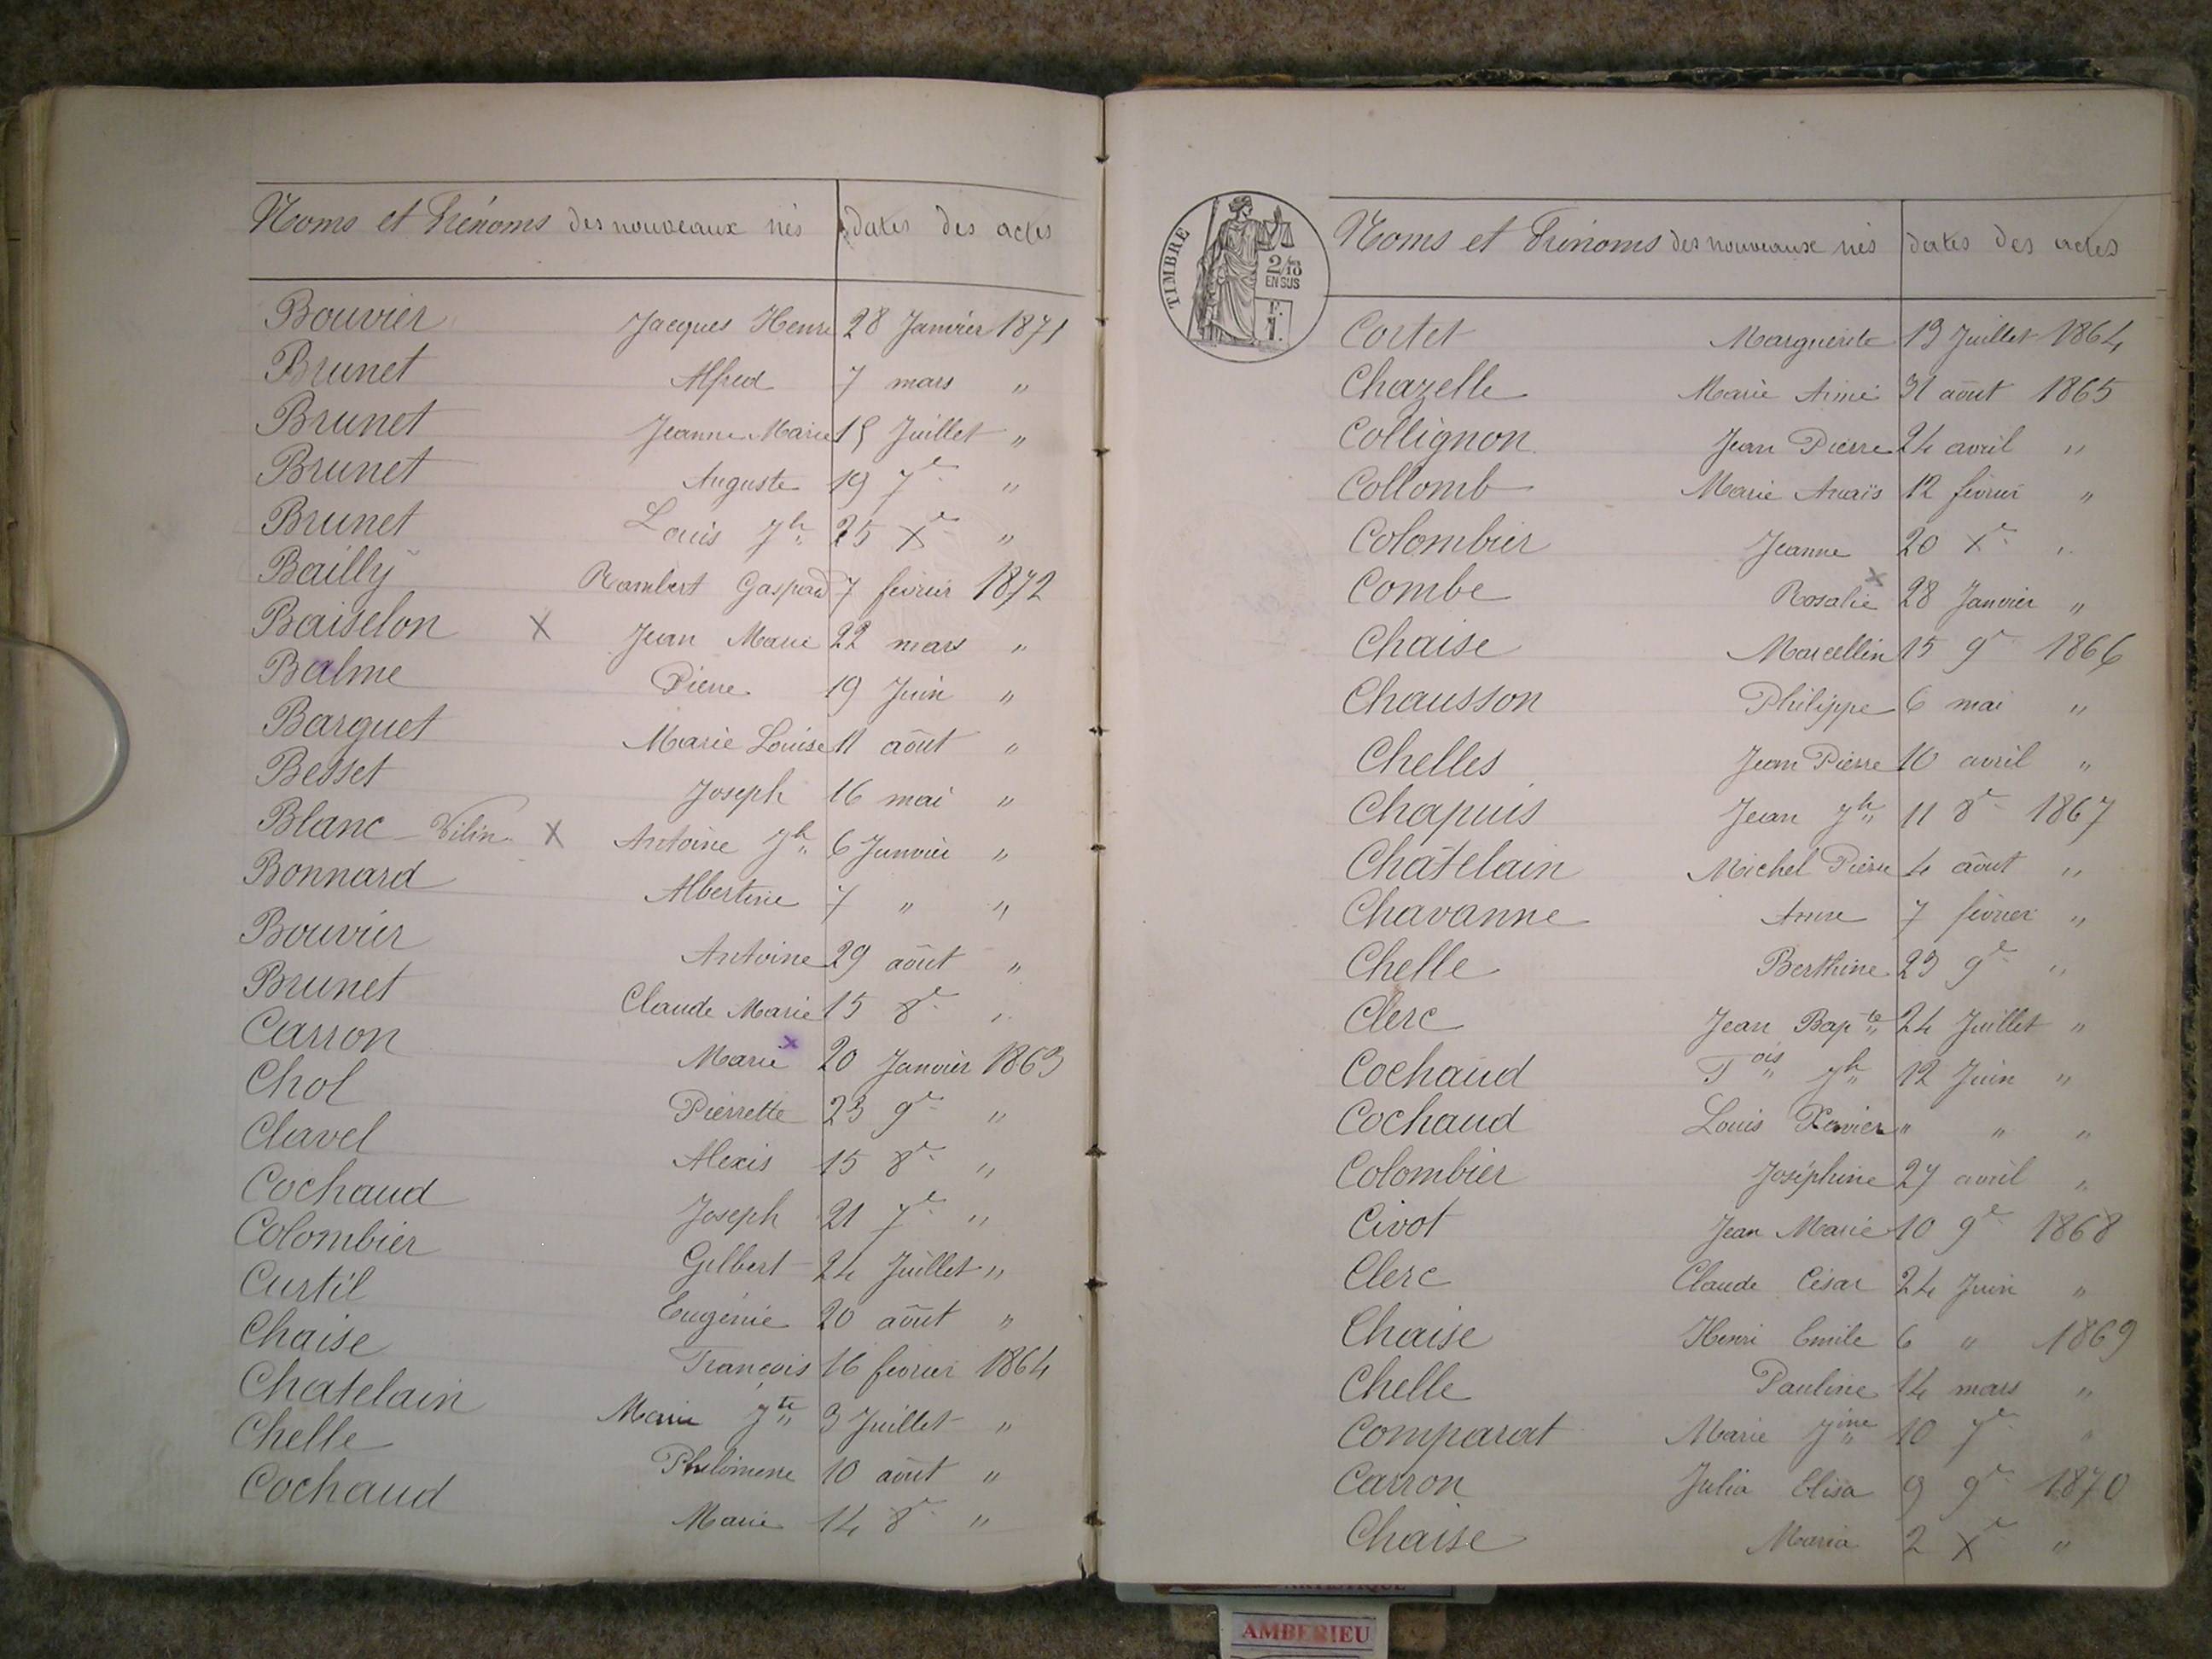 Noms et Prénoms des nouveaux nés dates des actes
Bouvier Jacques Henri 28 Janvier 1871
Brunet Alfred 7 mars "
Brunet Jeanne Marie 15 Juillet "
Brunet Auguste 19 7e "
Brunet Louis Jh 25 Xe "
Bailly Rambert Gaspard 7 février 1872
Baiselon X Jean Marie 22 mars "
Balme Pierre 19 Juin "
Barquet Marie Louise 11 août "
Besset Joseph 16 mai "
Blanc Vilin X Antoine Jh 6 Janvier "
Bonnard Albertine 7 " "
Bouvier Antoine 29 août "
Brunet Claude Marie 15 8e "
Carron Marie x 20 Janvier 1863
Chol Pierrette 23 9e "
Clavel Alexis 15 8e "
Cochaud Joseph 21 7e "
Colombier Gilbert 24 Juillet "
Curtil Eugénie 20 août "
Chaise François 16 février 1864
Chatelain Marie Jte 3 Juillet "
Chelle Philomene 10 août "
Cochaud Marie 14 8e "
TIMBRE
2/10
EN SUS
F.
1.
Noms et Prénoms des nouveaux nés dates des actes
Cortet Marguerite 13 Juillet 1864
Chazelle Marie Aimé 31 août 1865
Collignon Jean Pierre 24 avril "
Collomb Marie Anaïs 12 février "
Colombier Jeanne 20 Xe "
Combe Rosalie x 28 Janvier "
Chaise Marcellin 15 9e 1866
Chausson Philippe 6 mai "
Chelles Jean Pierre 10 avril "
Chapuis Jean Jh 11 8e 1867
Châtelain Michel Pierre 4 août "
Chavanne Anne 7 février "
Chelle Berthine 23 9e "
Clerc Jean Bapte 24 Juillet "
Cochaud Fois Jh 12 Juin "
Cochaud Louis Xavier " " "
Colombier Joséphine 27 avril "
Civot Jean Marie 10 9e 1868
Clerc Claude César 24 Juin "
Chaise Henri Emile 6 " 1869
Chelle Pauline 14 mars "
Comparat Marie Jine 10 7e "
Carron Julia Elisa 9 9e 1870
Chaise Maria 2 Xe "
AMBERIEU